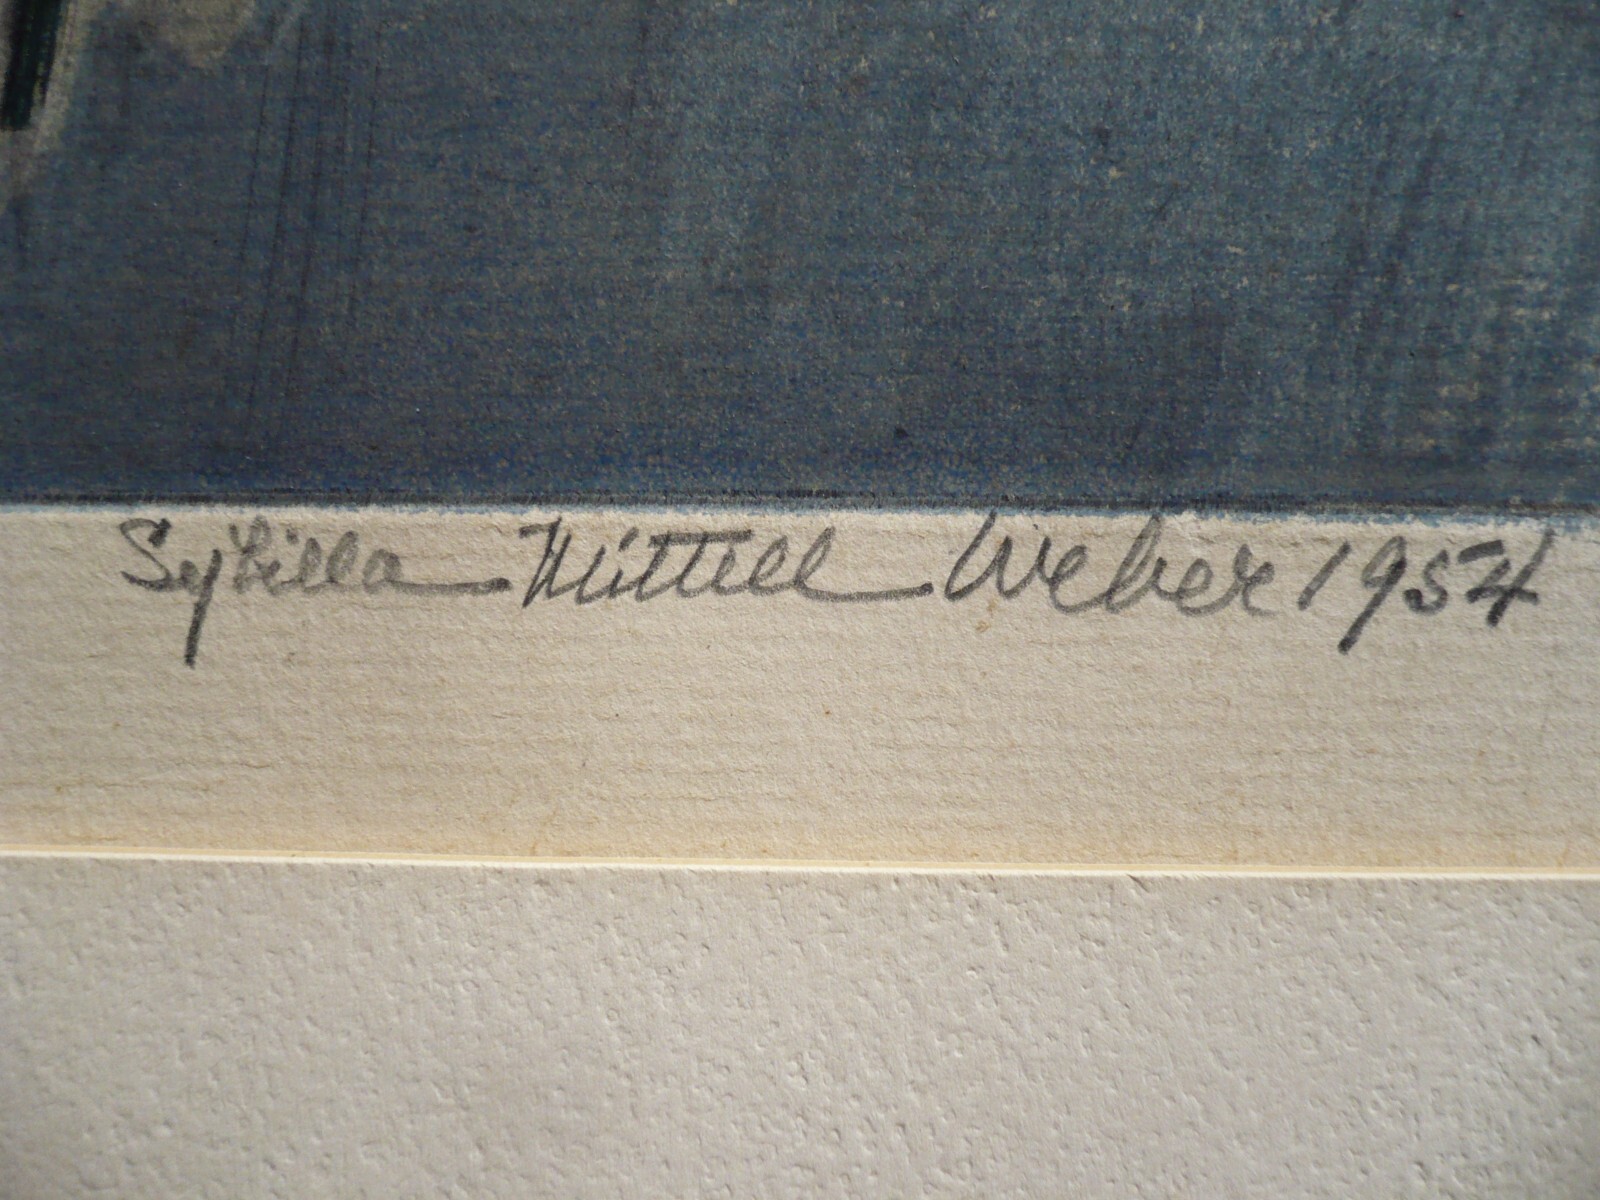 Sybilla Mittell Weber 1954